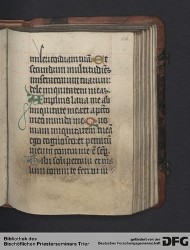 misericordiam tuā Et
secundum multitudinē
miserationum tuarum
dele iniquitatem meā
Amplius laua me ab
iniquitate mea et a pcc̄o
meo munda me Qm̄
niam iniquitatem meā
ego cognosco et peccatū
meum contra me ē semp
Tibi soli peccaui et ma
lum coram te feci ut iu
Bibliothek des
Bischöflichen Priesterseminars Trier
gefördert von der
Deutschen Forschungsgemeinschaft
DFG